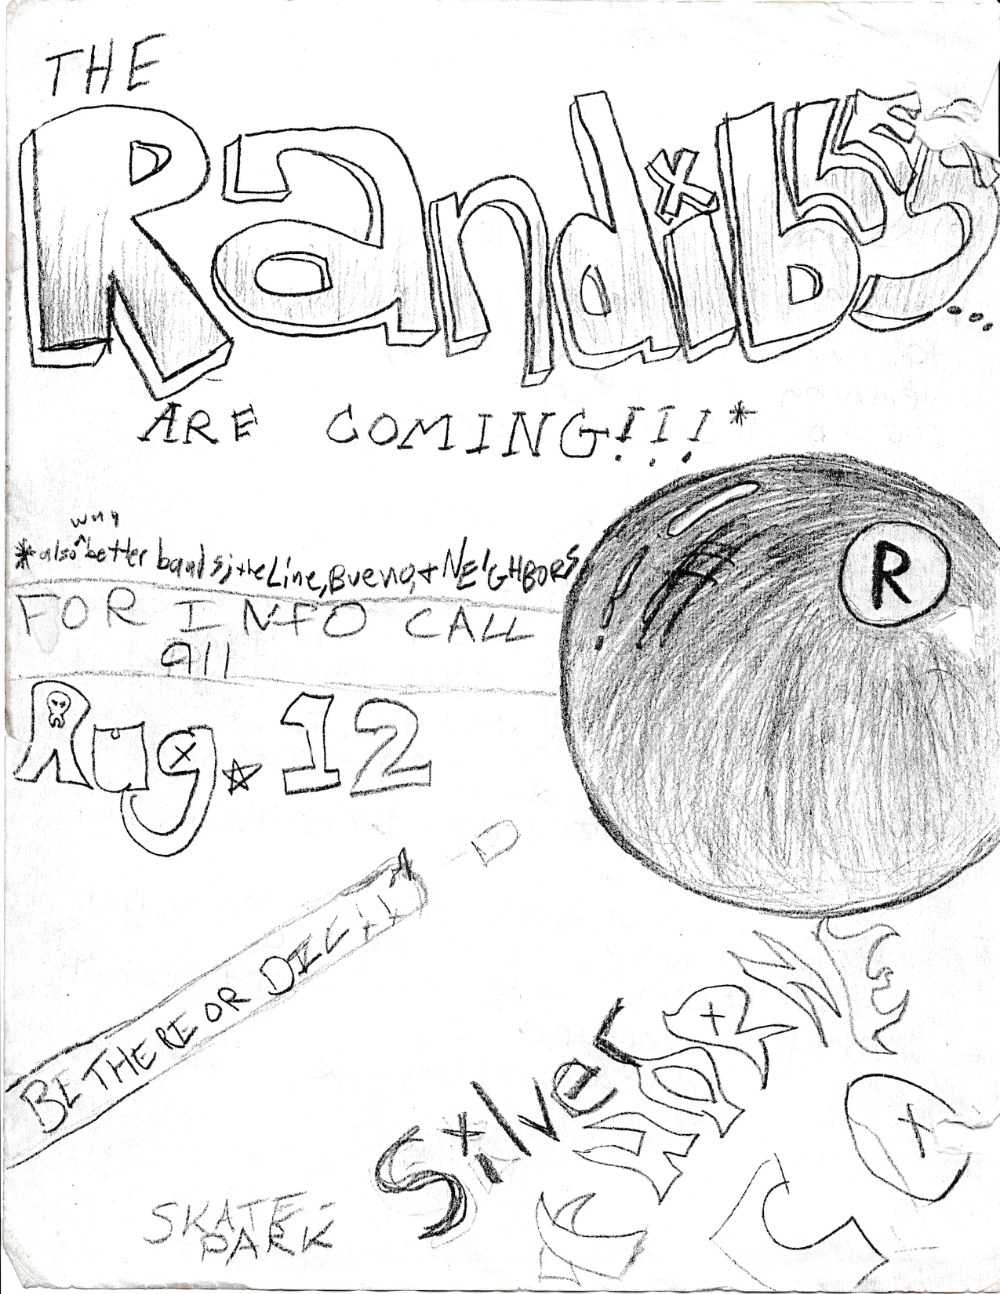 THE
RandibLES...
ARE COMING!!!*
way
*also ^ better bands; the Line, Bueno, + NEIGHBORS
FOR INFO CALL
911
R
Aug. 12
BE THERE OR DIE!!
Silver
SKATE-
PARK